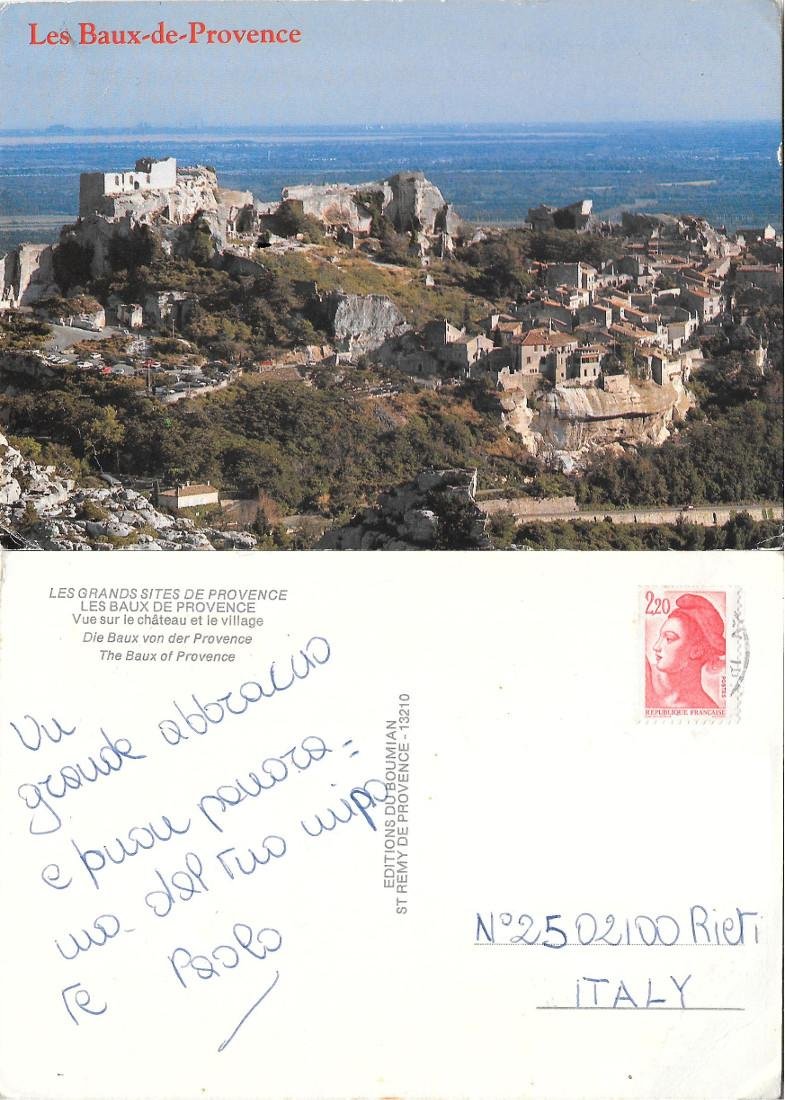 Les Baux-de-Provence
LES GRANDS SITES DE PROVENCE
LES BAUX DE PROVENCE
Vue sur le château et le village
Die Baux von der Provence
The Baux of Provence
2,20
POSTES
REPUBLIQUE FRANÇAISE
Un
grande abbraccio
e buon panora=
ma dal tuo nipo
te Paolo
EDITIONS DU BOUMIAN
ST REMY DE PROVENCE - 13210
N° 25 02100 Rieti
ITALY